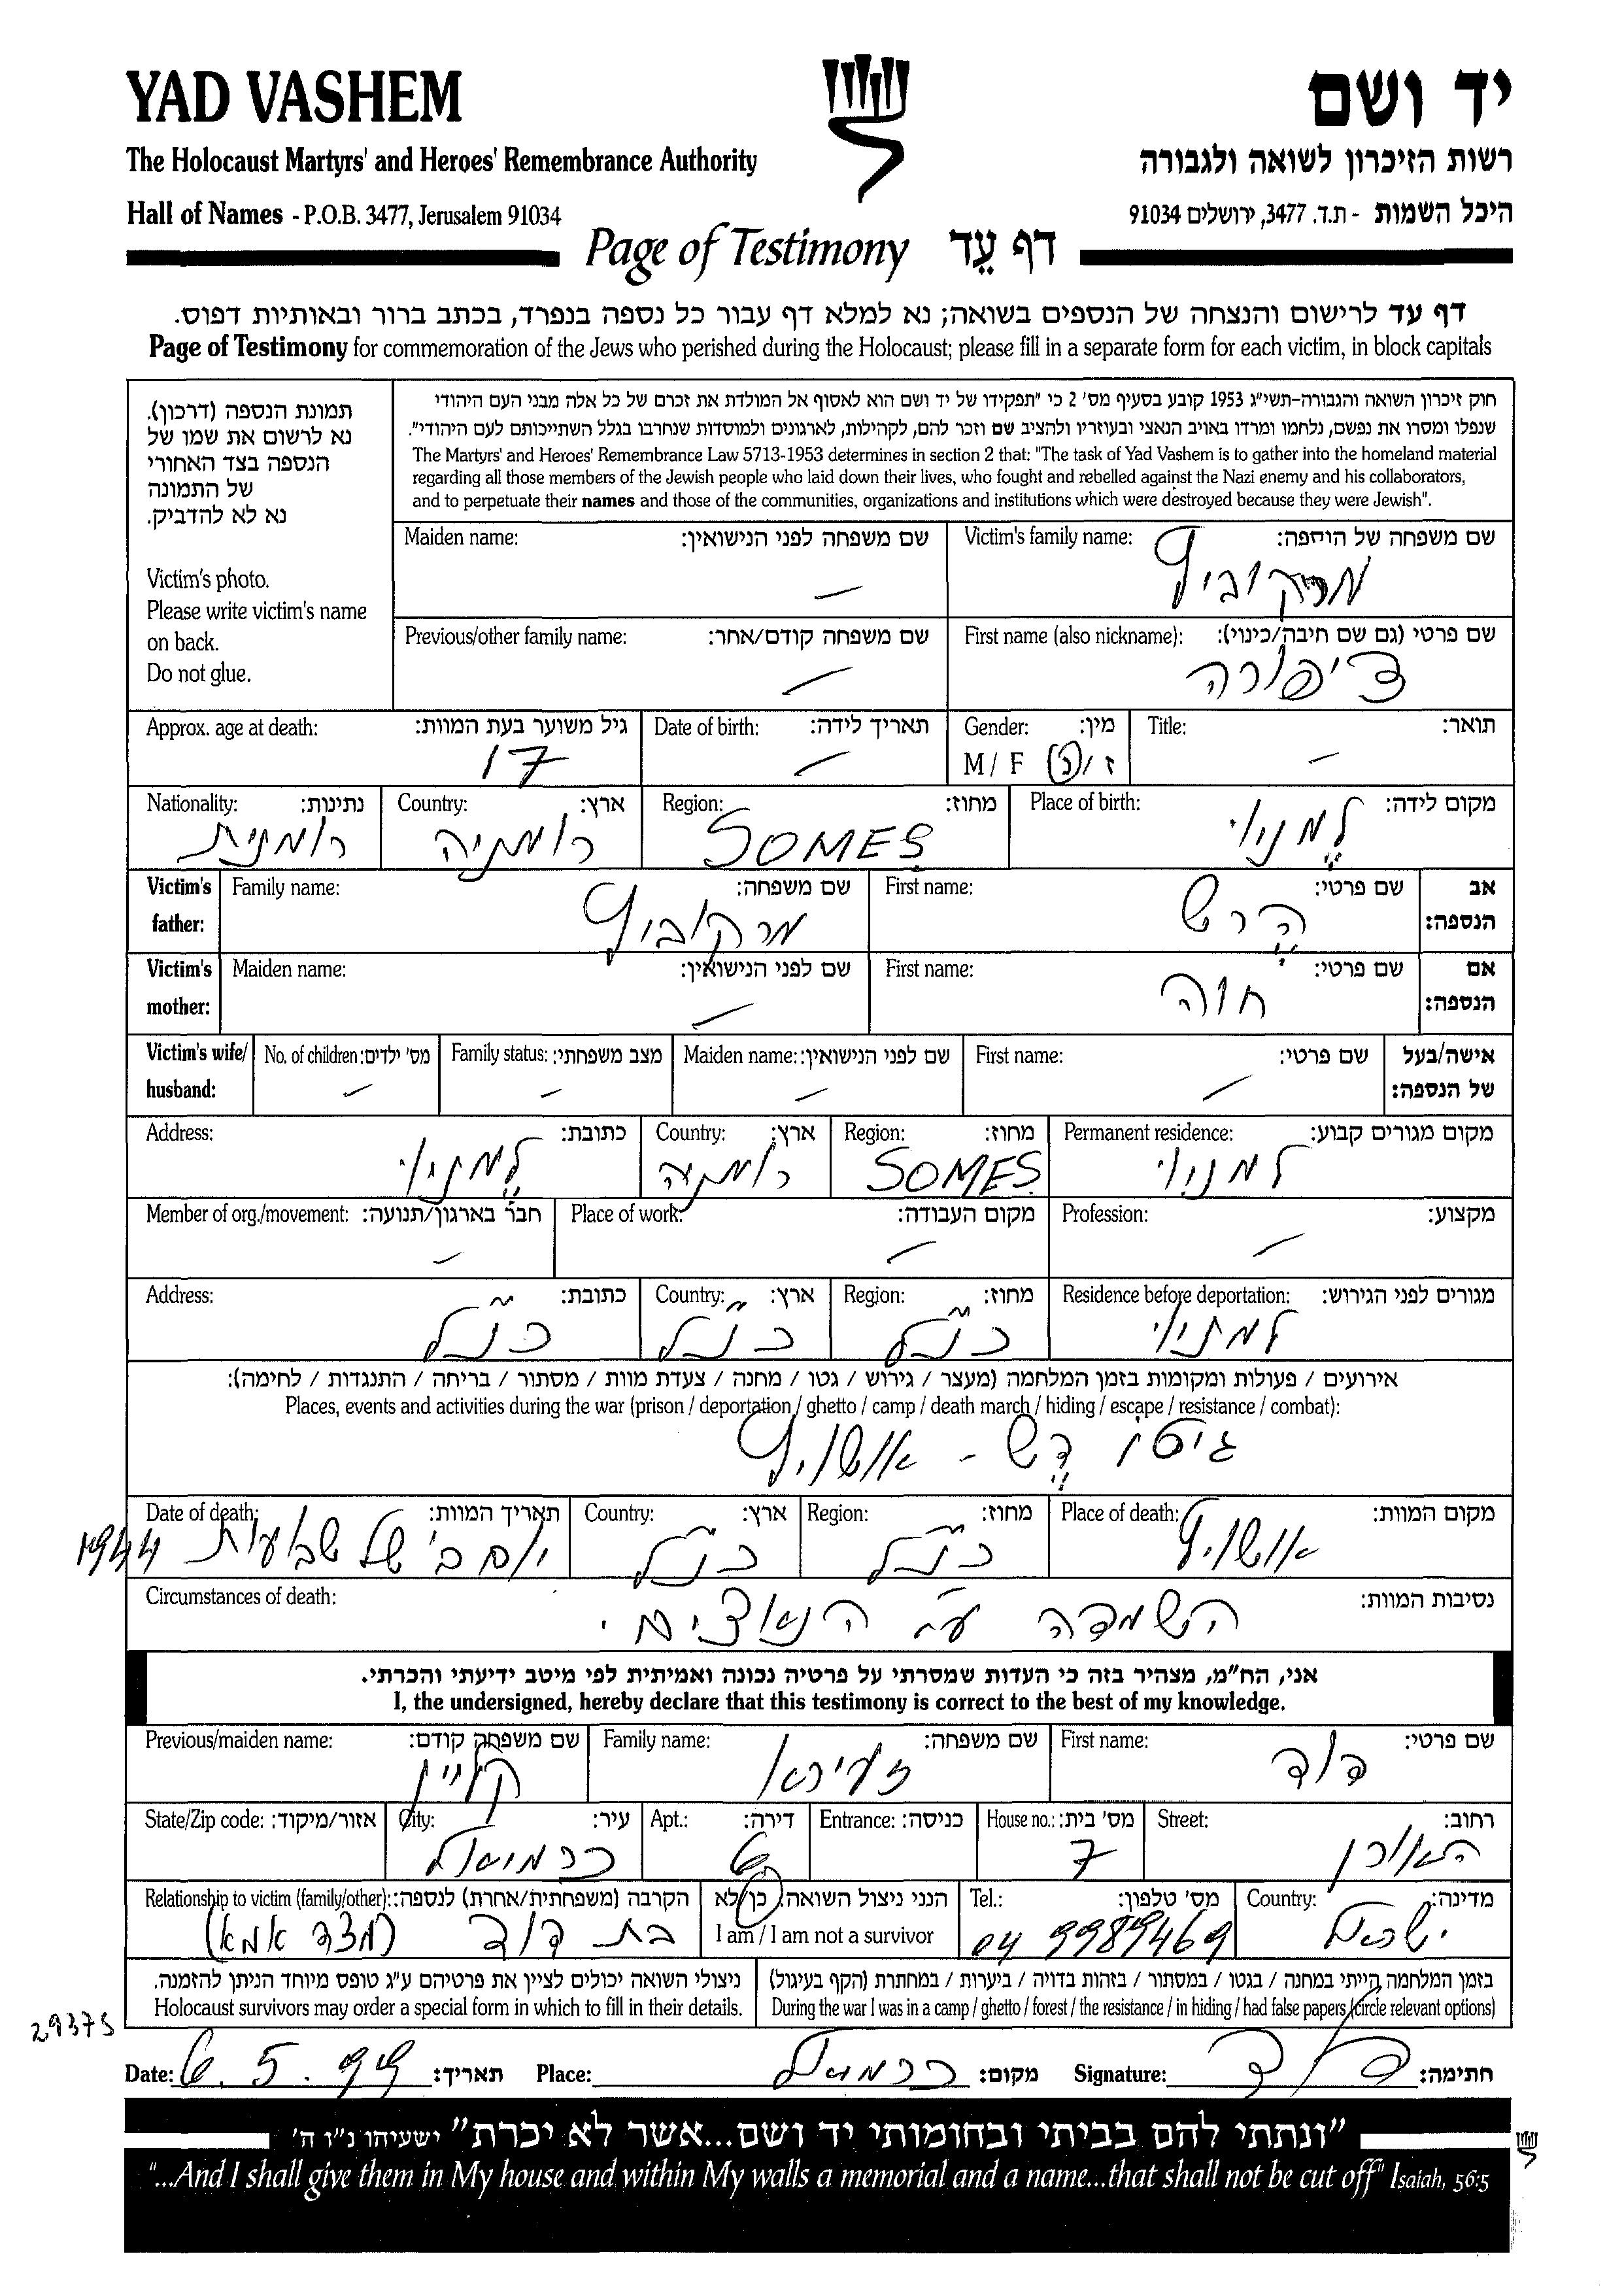 YAD VASHEM
יד ושם
The Holocaust Martyrs' and Heroes' Remembrance Authority
רשות הזיכרון לשואה ולגבורה
Hall of Names - P.O.B. 3477, Jerusalem 91034
היכל השמות - ת.ד. 3477, ירושלים 91034
Page of Testimony דף עֵד
דף עד לרישום והנצחה של הנספים בשואה; נא למלא דף עבור כל נספה בנפרד, בכתב ברור ובאותיות דפוס.
Page of Testimony for commemoration of the Jews who perished during the Holocaust; please fill in a separate form for each victim, in block capitals
תמונת הנספה (דרכון).
נא לרשום את שמו של
הנספה בצד האחורי
של התמונה
נא לא להדביק.
Victim's photo.
Please write victim's name
on back.
Do not glue.
חוק זיכרון השואה והגבורה-תשי"ג 1953 קובע בסעיף מס' 2 כי "תפקידו של יד ושם הוא לאסוף אל המולדת את זכרם של כל אלה מבני העם היהודי
שנפלו ומסרו את נפשם, נלחמו ומרדו באויב הנאצי ובעוזריו ולהציב שם וזכר להם, לקהילות, לארגונים ולמוסדות שנחרבו בגלל השתייכותם לעם היהודי".
The Martyrs' and Heroes' Remembrance Law 5713-1953 determines in section 2 that: "The task of Yad Vashem is to gather into the homeland material
regarding all those members of the Jewish people who laid down their lives, who fought and rebelled against the Nazi enemy and his collaborators,
and to perpetuate their names and those of the communities, organizations and institutions which were destroyed because they were Jewish".
Victim's family name: שם משפחה של הנספה:
מרקוביץ
Maiden name: שם משפחה לפני הנישואין:
–
First name (also nickname): שם פרטי (גם שם חיבה/כינוי):
ציפורה
Previous/other family name: שם משפחה קודם/אחר:
–
Title: תואר:
–
Gender: מין:
M / F ז / נ
Date of birth: תאריך לידה:
–
Approx. age at death: גיל משוער בעת המוות:
17
Place of birth: מקום לידה:
למניוי
Region: מחוז:
SOMES
Country: ארץ:
רומניה
Nationality: נתינות:
רומנית
Victim's father: אב הנספה:
First name: שם פרטי:
הרש
Family name: שם משפחה:
מרקוביץ
Victim's mother: אם הנספה:
First name: שם פרטי:
חוה
Maiden name: שם לפני הנישואין:
–
Victim's wife/husband: אישה/בעל של הנספה:
First name: שם פרטי:
–
Maiden name: שם לפני הנישואין:
–
Family status: מצב משפחתי:
–
No. of children: מס' ילדים:
–
Permanent residence: מקום מגורים קבוע:
למניוי
Region: מחוז:
SOMES
Country: ארץ:
רומניה
Address: כתובת:
למניוי
Profession: מקצוע:
–
Place of work: מקום העבודה:
–
Member of org./movement: חבר בארגון/תנועה:
–
Residence before deportation: מגורים לפני הגירוש:
למניוי
Region: מחוז:
כנ"ל
Country: ארץ:
כנ"ל
Address: כתובת:
כנ"ל
אירועים / פעולות ומקומות בזמן המלחמה (מעצר / גירוש / גטו / מחנה / צעדת מוות / מסתור / בריחה / התנגדות / לחימה):
Places, events and activities during the war (prison / deportation / ghetto / camp / death march / hiding / escape / resistance / combat):
גיטו דש - אושוויץ
Place of death: מקום המוות:
אושויץ
Region: מחוז:
כנ"ל
Country: ארץ:
כנ"ל
Date of death: תאריך המוות:
יום ב' של שבועות 1944
Circumstances of death: נסיבות המוות:
השמדה ע"י הנאצים.
אני, הח"מ, מצהיר בזה כי העדות שמסרתי על פרטיה נכונה ואמיתית לפי מיטב ידיעתי והכרתי.
I, the undersigned, hereby declare that this testimony is correct to the best of my knowledge.
First name: שם פרטי:
דוד
Family name: שם משפחה:
זעירא
Previous/maiden name: שם משפחה קודם:
קליין
Street: רחוב:
האורן
House no.: מס' בית:
7
Entrance: כניסה:
Apt.: דירה:
6
City: עיר:
כרמיאל
State/Zip code: אזור/מיקוד:
Country: מדינה:
ישראל
Tel.: מס' טלפון:
04 9989469
הנני ניצול השואה: כן/לא
I am / I am not a survivor
Relationship to victim (family/other): הקרבה (משפחתית/אחרת) לנספה:
בת דוד (מצד אמא)
בזמן המלחמה הייתי במחנה / בגטו / במסתור / בזהות בדויה / ביערות / במחתרת (הקף בעיגול)
During the war I was in a camp / ghetto / forest / the resistance / in hiding / had false papers (circle relevant options)
ניצולי השואה יכולים לציין את פרטיהם ע"ג טופס מיוחד הניתן להזמנה.
Holocaust survivors may order a special form in which to fill in their details.
29375
Date: 6.5.99 תאריך: Place: כרמיאל מקום: Signature: דוד חתימה:
"ונתתי להם בביתי ובחומותי יד ושם...אשר לא יכרת" ישעיהו נ"ו ה'
"...And I shall give them in My house and within My walls a memorial and a name...that shall not be cut off" Isaiah, 56:5